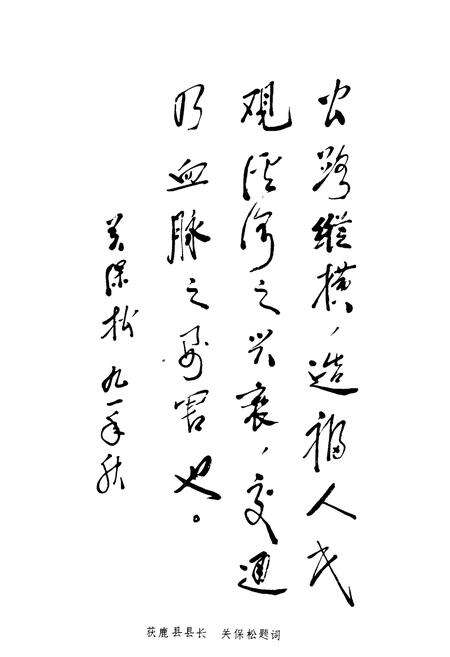 公路纵横，造福人民
观经济之兴衰，交通
乃血脉之要害也。
关保松 九一年秋
获鹿县县长 关保松题词